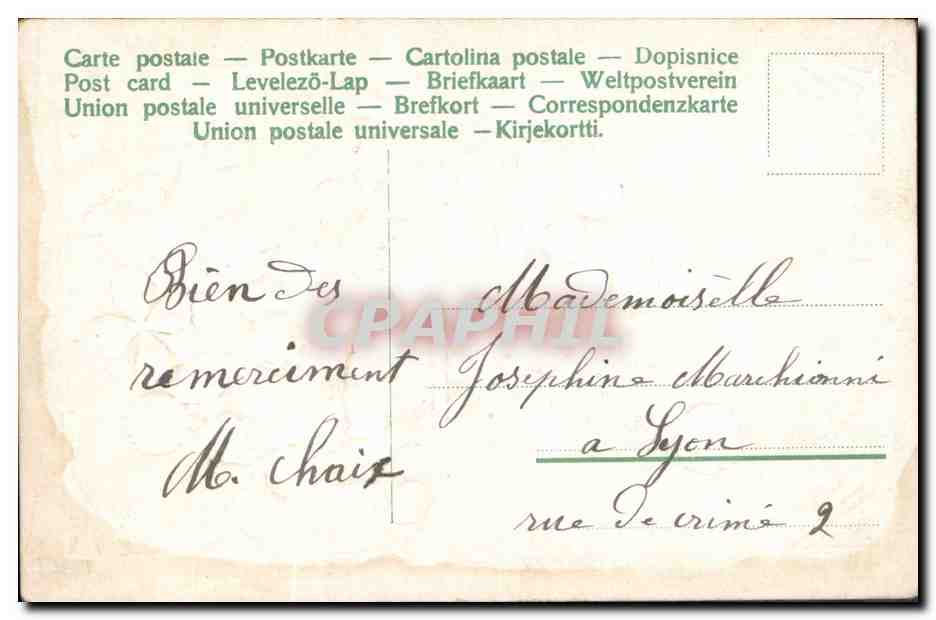 Carte postale — Postkarte — Cartolina postale — Dopisnice
Post card — Levelezõ-Lap — Briefkaart — Weltpostverein
Union postale universelle — Brefkort — Correspondenzkarte
Union postale universale — Kirjekortti.
Bien des
remerciment
M. Chaix
Mademoiselle
Josephine Marchionni
a Lyon
rue de crimé 2
CPAPHIL